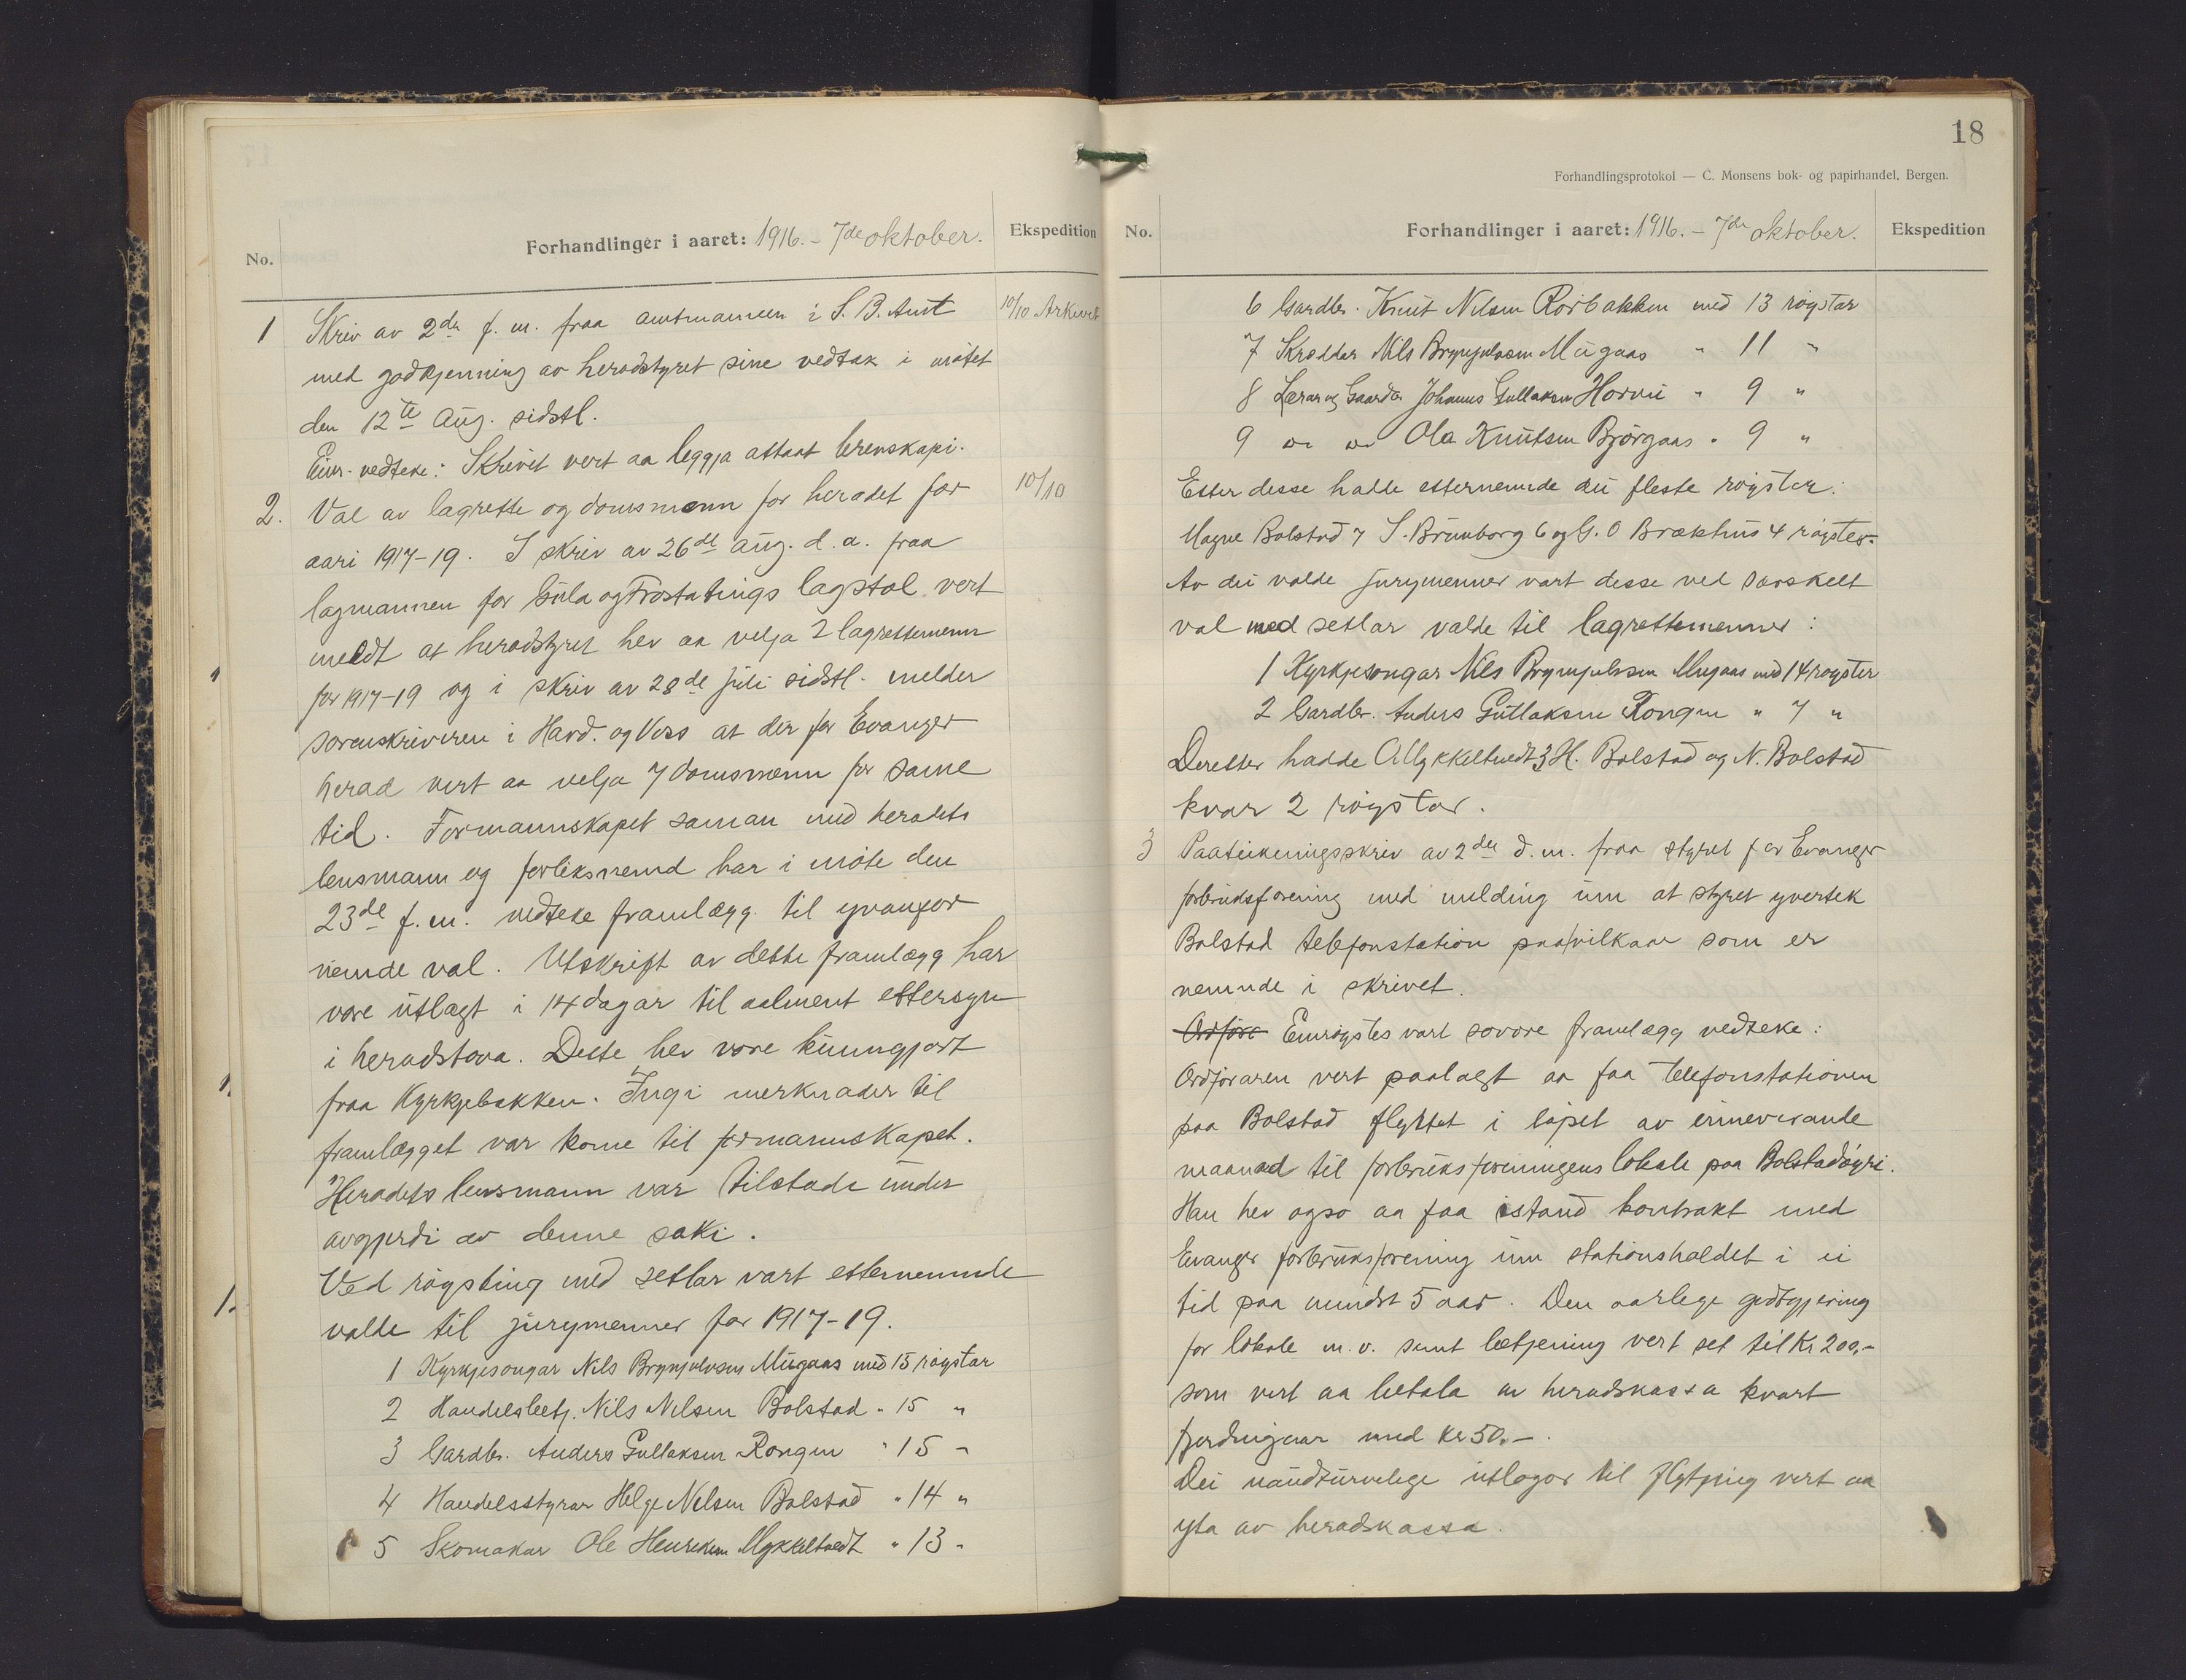 No.
Forhandlinger i aaret: 1916. - 7de oktober.
Ekspedition
1 Skriv av 2dn f. m. fraa amtmannen i S. B. Amt
10/10 Arkivet
med godkjenning av heradstyret sine vedtak i møtet
den 12te Aug. sidstl.
Einr. vedteke: Skrivet vert aa leggja attaat brevskapi.
2. Val av lagrette og domsmenn for heradet for
10/10
aari 1917-19. I skriv av 26de Aug. d. a. fraa
lagmannen for Gula og Frostatings lagstol vert
meldt at heradstyret hev aa velja 2 lagrettemenn
for 1917-19 og i skriv av 28de juli sidstl. melder
sorenskriveren i Hard. og Voss at der for Evanger
herad vert aa velja 7 domsmenn for same
tid. Formannskapet saman med heradets
lensmann og forliksnemnd har i møte den
23de f. m. vedteke framlegg til yvanfor
nemde val. Utskrift av dette framlægg har
vore utlagt i 14 dagar til aalment ettersyn
i heradstova. Dette hev vore kunngjort
fraa Kyrkjebakken. Ingi merknader til
framlægget var kome til formannskapet.
Heradets lensmann var tilstade under
avgjerdi av denne saki.
Ved røysting med setlar vart etternemnde
valde til jurymenner for 1917-19.
1 Kyrkjesongar Nils Brynjulvsen Mugaas med 15 røystar
2 Handelsbetj. Nils Nilsen Bolstad " 15 "
3 Gardbr. Anders Gullaksen Rongen " 15 "
4 Handelsstyrar Helge Nilsen Bolstad " 14 "
5 Skomakar Ole Henriksen Mykkeltvedt " 13 "
18
Forhandlingsprotokol — C. Monsens bok- og papirhandel, Bergen.
No.
Forhandlinger i aaret: 1916. - 7de oktober.
Ekspedition
6 Gardbr. Knut Nilsen Rørbakken med 13 røystar
7 Skreddar Nils Brynjulvsen Mugaas " 11 "
8 Lærar og Gaardbr Johannes Gullaksen Horvei " 9 "
9 Ola Knutsen Bjørgaas " 9 "
Etter desse hadde etternemnde dei fleste røystar:
Magne Bolstad 7 S. Brunborg 6 og G. O Brækhus 4 røyster.
Av dei valde jurymenner vart desse ved særskelt
val med setlar valde til lagrettemenner:
1 Kyrkjesongar Nils Brynjulvsen Mugaas med 14 røyster
2 Gardbr. Anders Gullaksen Rongen " 7 "
Deretter hadde O Mykkeltvedt 3 H. Bolstad og N. Bolstad
kvar 2 røystar.
3 Paateikningsskriv av 2den d. m. fraa styret for Evanger
forbruksforening med melding um at styret yvertek
Bolstad telefonstation paa vilkaar som er
nemnde i skrivet.
Ordføre Einrøystes vart sovore framlegg vedteke:
Ordføraren vert paalagt aa faa telefonstationen
paa Bolstad flyttet i løpet av inneverande
maanad til forbruksforeningens lokale paa Bolstadøyri.
Han hev ogso aa faa istand kontrakt med
Evanger forbruksforening um stationshaldet i ei
tid paa mindst 5 aar. Den aarlege godtgjering
for lokale m. v. samt betjening vert set til Kr 200,-
som vert aa betala av heradskassa kvart
fjerdingaar med Kr 50.-.
Dei naudturvelege utlagor til flytjing vert aa
yta av heradskassa.